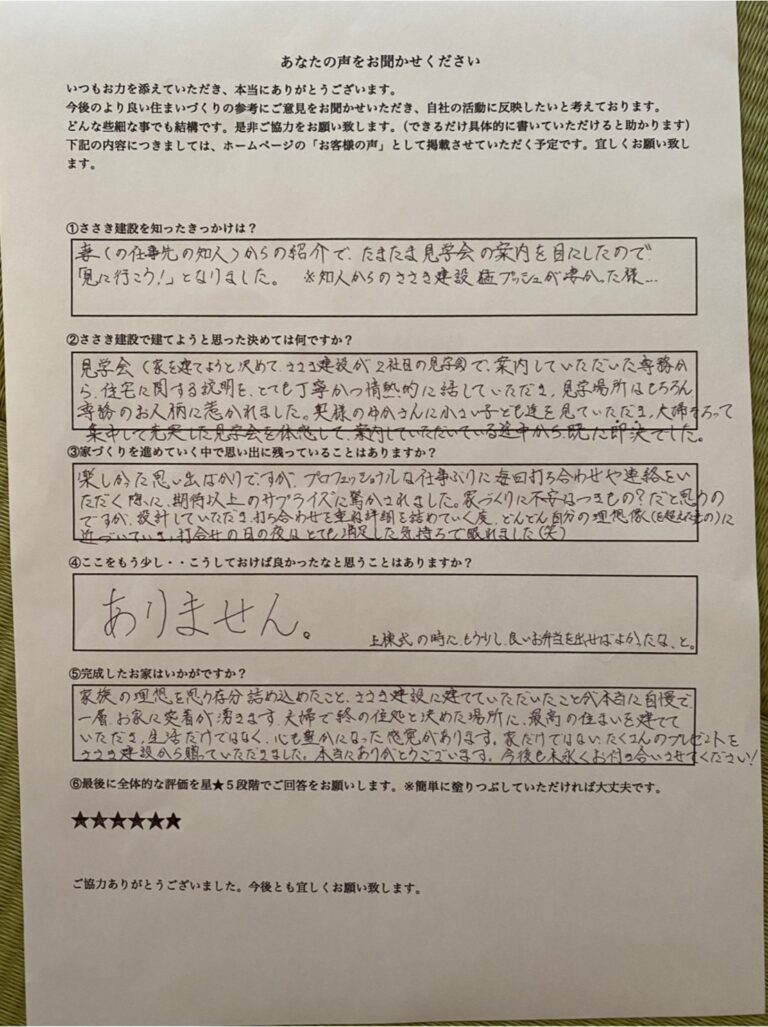 あなたの声をお聞かせください
いつもお力を添えていただき、本当にありがとうございます。
今後のより良い住まいづくりの参考にご意見をお聞かせいただき、自社の活動に反映したいと考えております。
どんな些細な事でも結構です。是非ご協力をお願い致します。（できるだけ具体的に書いていただけると助かります）
下記の内容につきましては、ホームページの「お客様の声」として掲載させていただく予定です。宜しくお願い致し
ます。
①ささき建設を知ったきっかけは？
妻(の仕事先の知人)からの紹介で、たまたま見学会の案内を目にしたので
「見に行こう！」となりました。 ※知人からのささき建設猛プッシュが凄かった様…
②ささき建設で建てようと思った決めては何ですか？
見学会(家を建てようと決めて、ささき建設が2社目の見学会)で、案内していただいた専務か
ら、住宅に関する説明を、とても丁寧かつ情熱的に話していただき、見学場所はもちろん
専務のお人柄に惹かれました。奥様のゆかさんに小さい子ども達を見ていただき、夫婦そろって
集中して充実した見学会を体感して、案内していただいている途中から、既に即決でした。
③家づくりを進めていく中で思い出に残っていることはありますか？
楽しかった思い出ばかりですが、プロフェッショナルな仕事ぶりに毎回打ち合わせや連絡をい
ただく際に、期待以上のサプライズに驚かされました。家づくりに不安はつきもの？だと思うの
ですが、設計していただき、打ち合わせを重ね詳細を詰めていく度、どんどん自分の理想像(を超えたもの)に
近づいていき、打合せの日の夜はとても満足した気持ちで眠れました(笑)
④ここをもう少し・・こうしておけば良かったなと思うことはありますか？
ありません。 上棟式の時に、もう少し良いお弁当を出せばよかったな、と。
⑤完成したお家はいかがですか？
家族の理想を思う存分詰め込めたこと、ささき建設に建てていただいたことが本当に自慢で、
一層お家に愛着が湧きます。夫婦で終の住処と決めた場所に、最高の住まいを建てて
いただき、生活だけではなく、心も豊かになった感覚があります。家だけではないたくさんのプレゼントを
ささき建設から賜っていただきました。本当にありがとうございます。今後も末永くお付き合いさせてください！
⑥最後に全体的な評価を星★５段階でご回答をお願いします。※簡単に塗りつぶしていただければ大丈夫です。
★★★★★★
ご協力ありがとうございました。今後とも宜しくお願い致します。